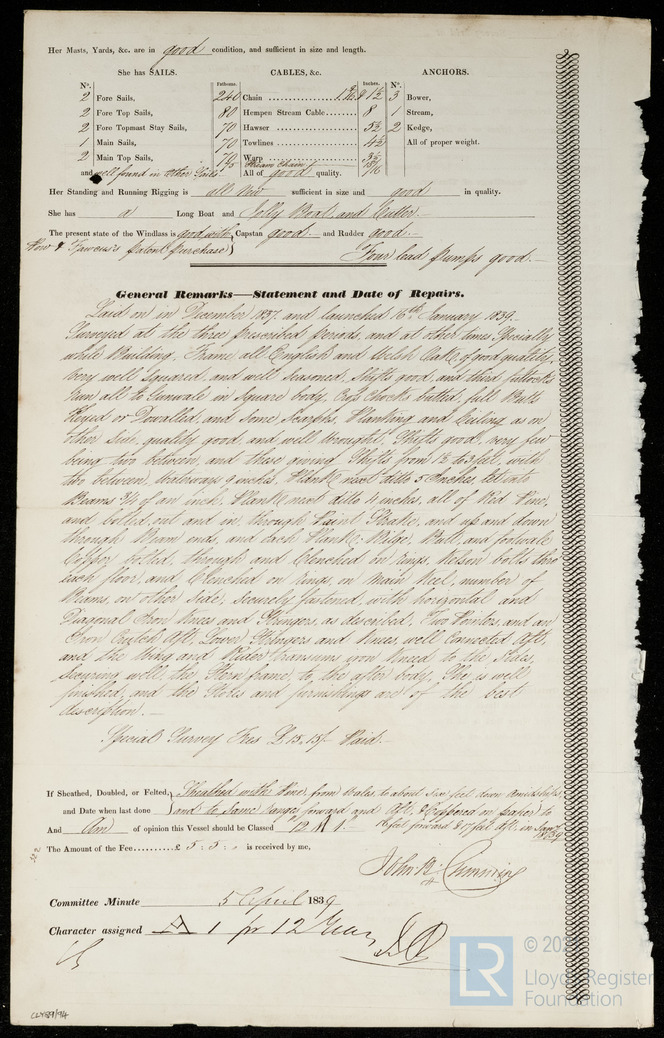 Her Masts, Yards, &c. are in good condition, and sufficient in size and length.
She has SAILS. CABLES, &c. ANCHORS.
N°. Fathoms. Inches. N°.
2 Fore Sails, 240 Chain 1 1/2 3 Bower,
2 Fore Top Sails, 80 Hempen Stream Cable 8 1 Stream,
2 Fore Topmast Stay Sails, 70 Hawser 5½ 2 Kedge,
1 Main Sails, 70 Towlines 4½ All of proper weight.
2 Main Top Sails, 70 Warp 3½
Stream Chain
and well found in other Sails All of good quality.
Her Standing and Running Rigging is all New sufficient in size and good in quality.
She has a Long Boat and Jolly Boat and Cutter.
The present state of the Windlass is good with Capstan good. and Rudder good.
patent purchase Four lead pumps good.
General Remarks—Statement and Date of Repairs.
Laid on in December 1837, and launched 16th January 1839.
Surveyed at the three prescribed periods, and at other times Specially
while Building. Frame all English and Welsh Oak, of good quality,
very well Squared, and well Seasoned, Shifts good, and third futtocks
run all to Gunwale in Square body, Cross Chocks butted, full Butts
Keyed or Dowalled, and Some Scarphs. Planking and Ceiling as on
other Side, quality good and well wrought, Shifts good, very few
being two between, and these giving Shifts from to feet, with
two between. Waterways 9 inches. Plank next ditto 5 Inches, let into
Beams 3/4 of an inch. Plank next ditto 4 inches, all of Red Pine,
and bolted out and in, through Paint Strake, and up and down
through Beam ends, and each Plank. Bilge, Butt, and footwale
Copper bolted, through and Clenched on rings. Kelson bolts thro
each floor, and Clenched on rings, on Main Keel, number of
Beams, on other Side, Securely fastened, with horizontal and
Diagonal Iron Knees and Stringers, as described. Two Pointers, and an
Iron Crutch Aft, Lower Stringers and Knees, well Connected Aft,
and the Wing and Rider transoms iron Kneed to the Sides,
Securing well the Stern frame, to the after body. She is well
finished, and the Stores and furnishings are of the best
description.
Special Survey Fees £ 15.15/- Paid.
If Sheathed, Doubled, or Felted, Sheathed with Pine, from Wales to about Six feet down Amidships,
and Date when last done and to Same range forward and Aft, & Coppered on paper to
16 feet forward & 17 feet Aft. in Jany 1839
And Am of opinion this Vessel should be Classed 12 A 1.
The Amount of the Fee £ 5 : 5 : 0 is received by me,
John Cumming
Committee Minute 5 April 1839
Character assigned A 1 for 12 Years
© 202
Lloyd's Register
Foundation
LR
CLY89/94